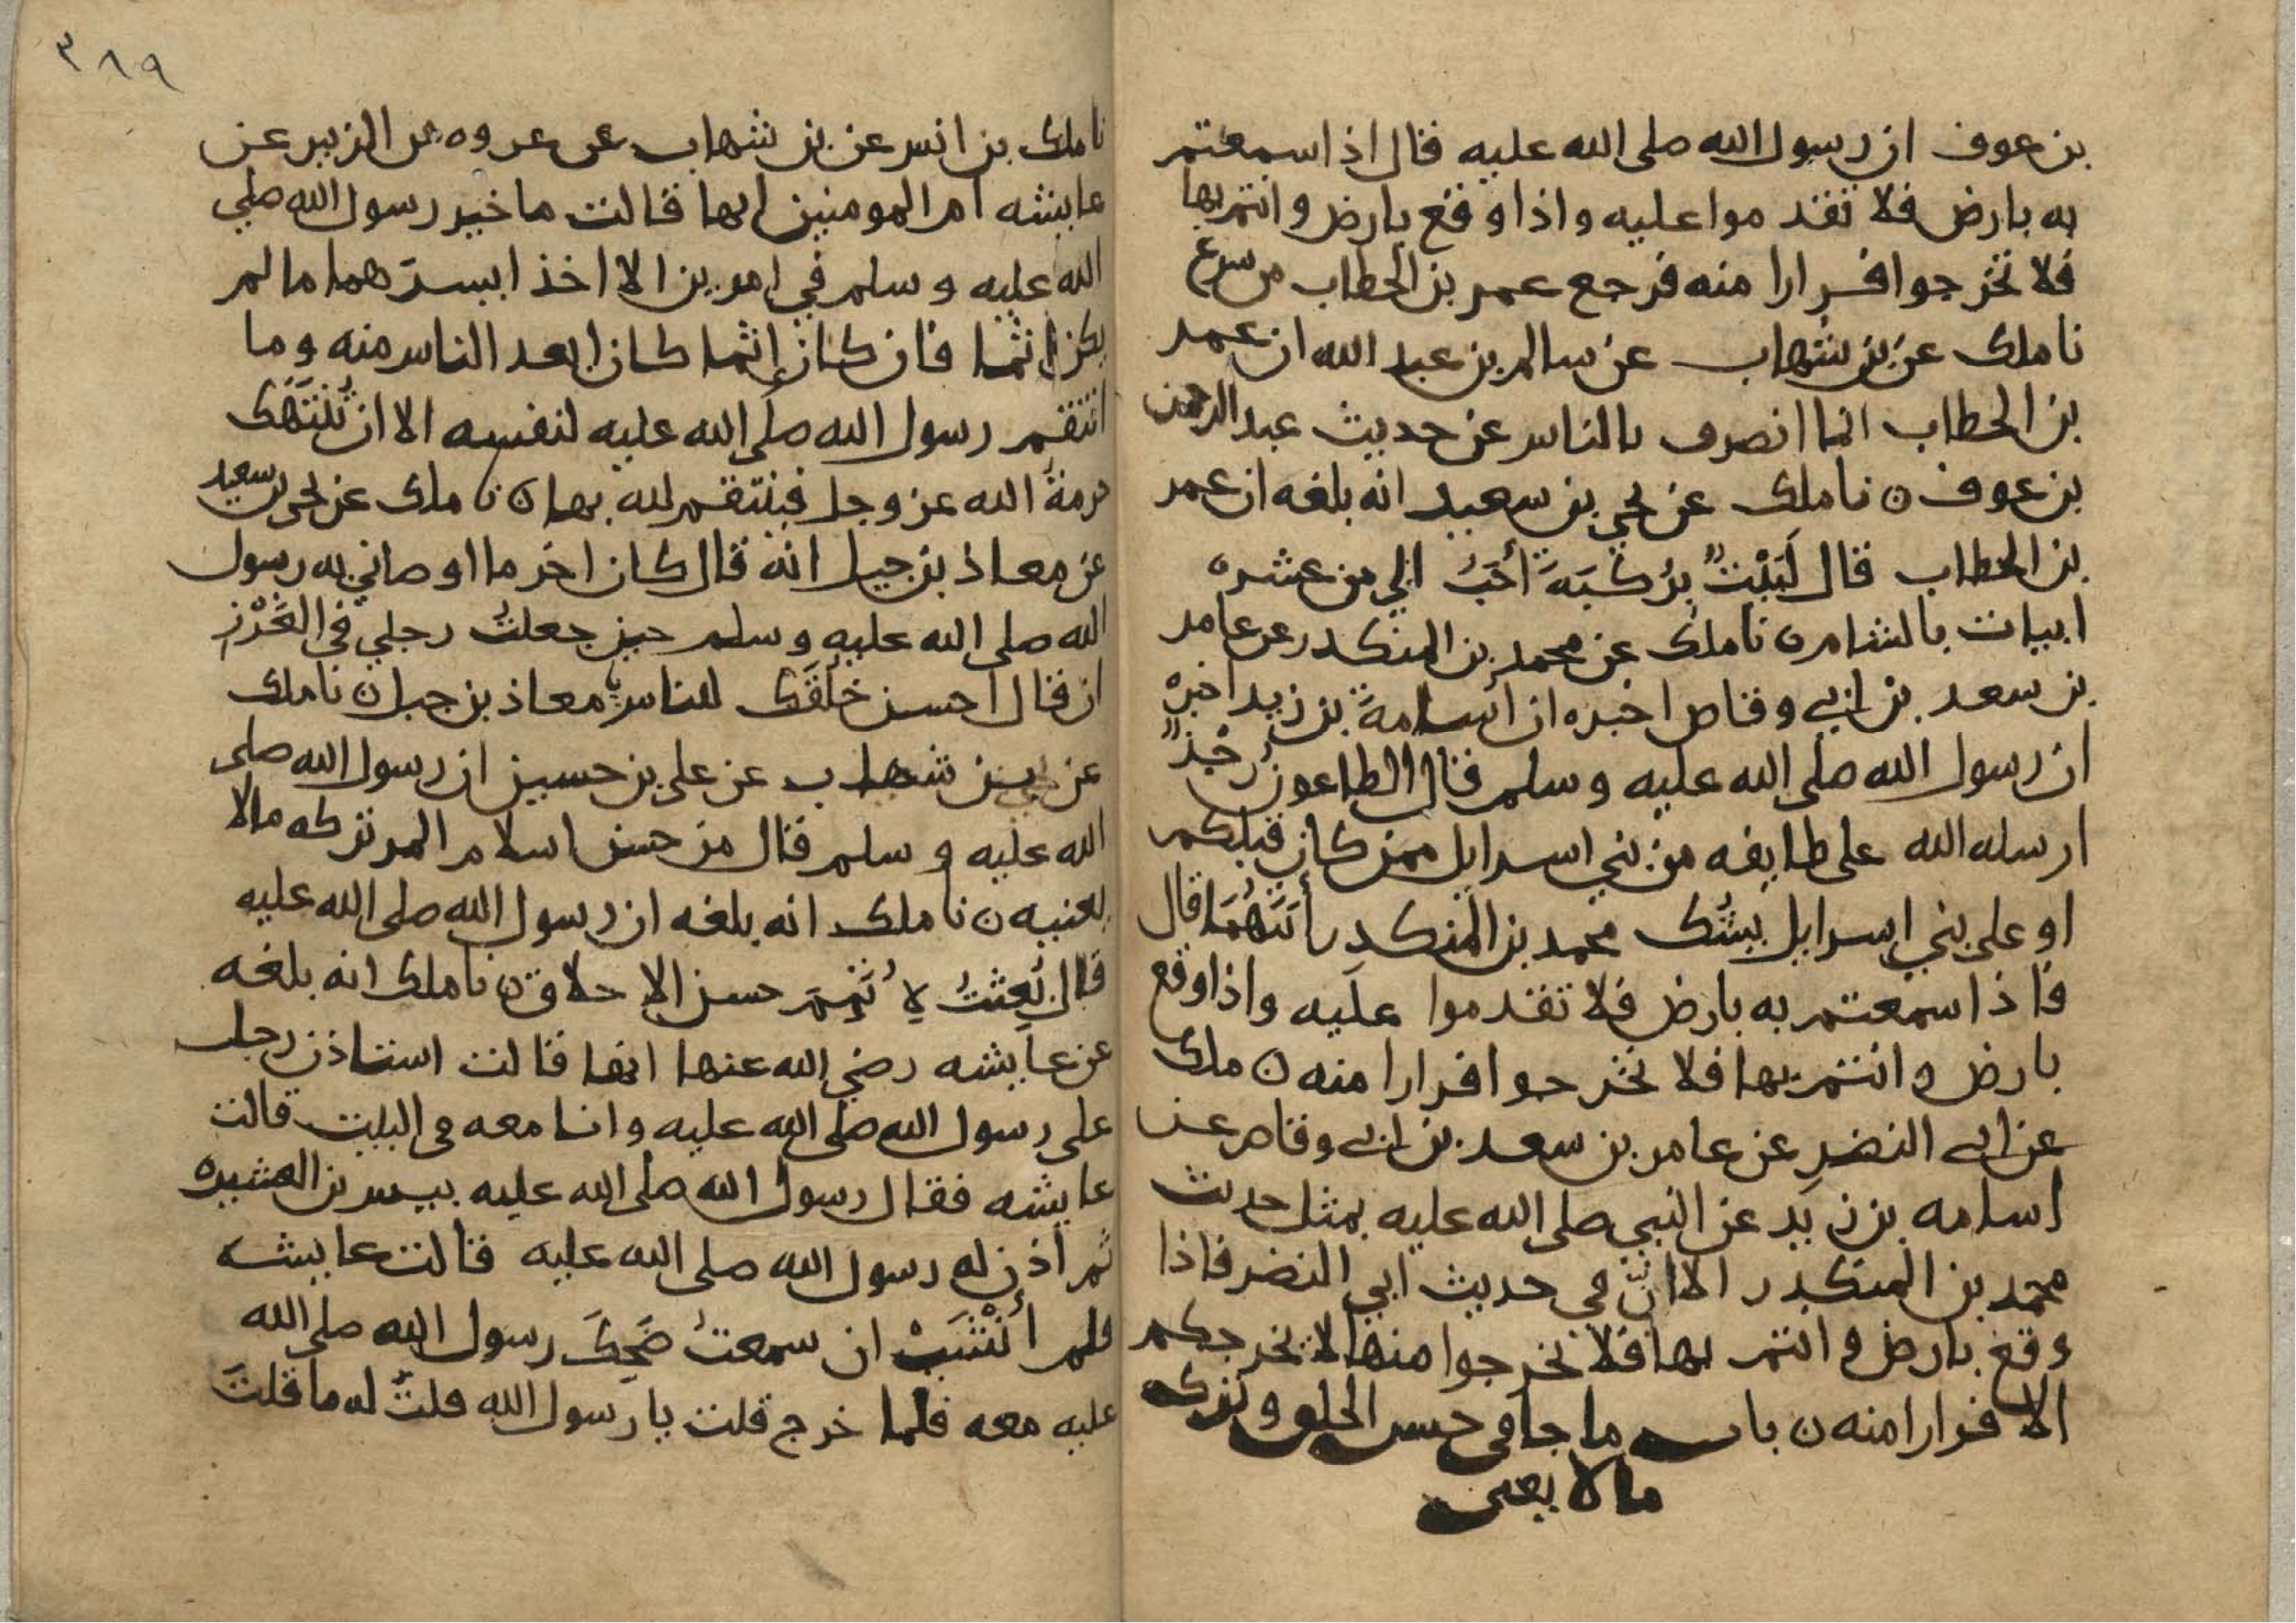 بن عوف ان رسول الله صلى الله عليه قال اذا سمعتم
به بارض فلا تقدموا عليه واذا وقع بارض وانتم بها
فلا تخرجوا فرارا منه فرجع عمر بن الخطاب من سرغ
نا ملك عن بن شهاب عن سالم بن عبد الله ان عمر
بن الخطاب انما انصرف بالناس عن حديث عبد الرحمن
بن عوف ن نا ملك عن يحيى بن سعيد انه بلغه ان عمر
بن الخطاب قال لَبَيْتٌ بِرُكْبَةَ أحَبُّ الي من عشره
ابيات بالشام ن نا ملك عن محمد بن المنكدر عن عامر
بن سعد بن ابي وقاص اخبره ان اسامة بن زيد اخبره
ان رسول الله صلى الله عليه وسلم قال الطاعون رُجْزٌ
ارسله الله على طايفه من بني اسرايل ممن كان قبلكم
او على بني اسرايل يشُك محمد بن المنكدر أيَّتُهُمَا قال
فاذا سمعتم به بارض فلا تقدموا عليه واذا وقع
بارض وانتم بها فلا تخرجوا فرارا منه ن ملك
عن ابي النضر عن عامر بن سعد بن ابي وقاص عن
اسامه بن زيد عن النبي صلى الله عليه بمثل حديث
محمد بن المنكدر الا انّ في حديث ابي النضر فاذا
وقع بارض وانتم بها فلا تخرجوا منها لا يخرجكم
الا فرارا منه ن باب ما جا في حسن الخلق وتركه
ما لا يعنى
٣٨٩
نا ملك بن انس عن بن شهاب عن عروه بن الزبير عن
عايشه ام المومنين انها قالت ما خير رسول الله صلي
الله عليه وسلم في امرين الا اخذ ايسرهما ما لم
يكن اثما فان كان إثما كان ابعد الناس منه وما
انتقم رسول الله صلى الله عليه لنفسه الا ان تُنْتَهَك
حرمةُ الله عز وجل فينتقم لله بها ن نا ملك عن يحيى بن سعيد
عن معاذ بن جبل انه قال كان اخر ما اوصاني به رسول
الله صلى الله عليه وسلم حين جعلتُ رجلي في الغَرْزِ
ان قال احسن خلقَك للناس يا معاذ بن جبل ن نا ملك
عن بن شهاب عن علي بن حسين ان رسول الله صلى
الله عليه وسلم قال من حسن اسلام المر تركه مالا
يعنيه ن نا ملك انه بلغه ان رسول الله صلى الله عليه
قال بُعِثْتُ لِأُتَمِّمَ حسن الاخلاق ن نا ملك انه بلغه
عن عايشه رضي الله عنها انها قالت استاذن رجل
على رسول الله صلى الله عليه وانا معه في البيت قالت
عايشه فقال رسول الله صلى الله عليه بيس بن العشيره
ثم اذن له رسول الله صلى الله عليه قالت عايشه
فلم أنْشَبْ ان سمعتُ ضَحِكَ رسول الله صلى الله
عليه معه فلما خرج قلت يا رسول الله قلتَ له ما قلتَ